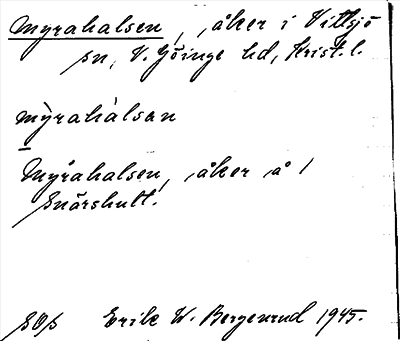 Myrahalsen, åker i Vittsjö
sn, V. Göinge hd, Krist. l.
mỳrahàlsan
Myrahalsen, åker å 1
Snärshult.
SOS Erik W. Bergenrud 1945.